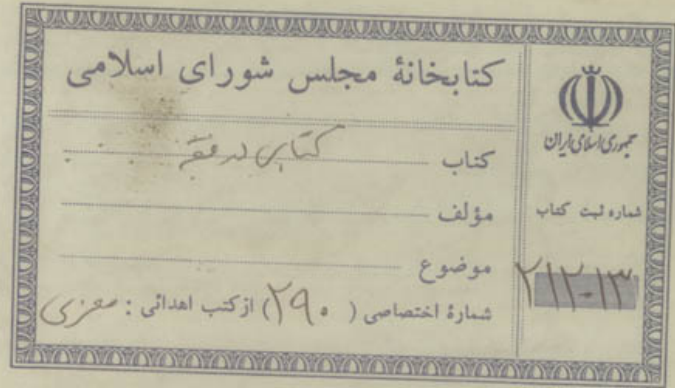 کتابخانهٔ مجلس شورای اسلامی
کتاب کتابی در فقه
مؤلف
موضوع
شمارهٔ اختصاصی ( ۲۹۰ ) از کتب اهدائی : معزی
جمهوری اسلامی ایران
شماره ثبت کتاب
۲۱۲۰۱۳